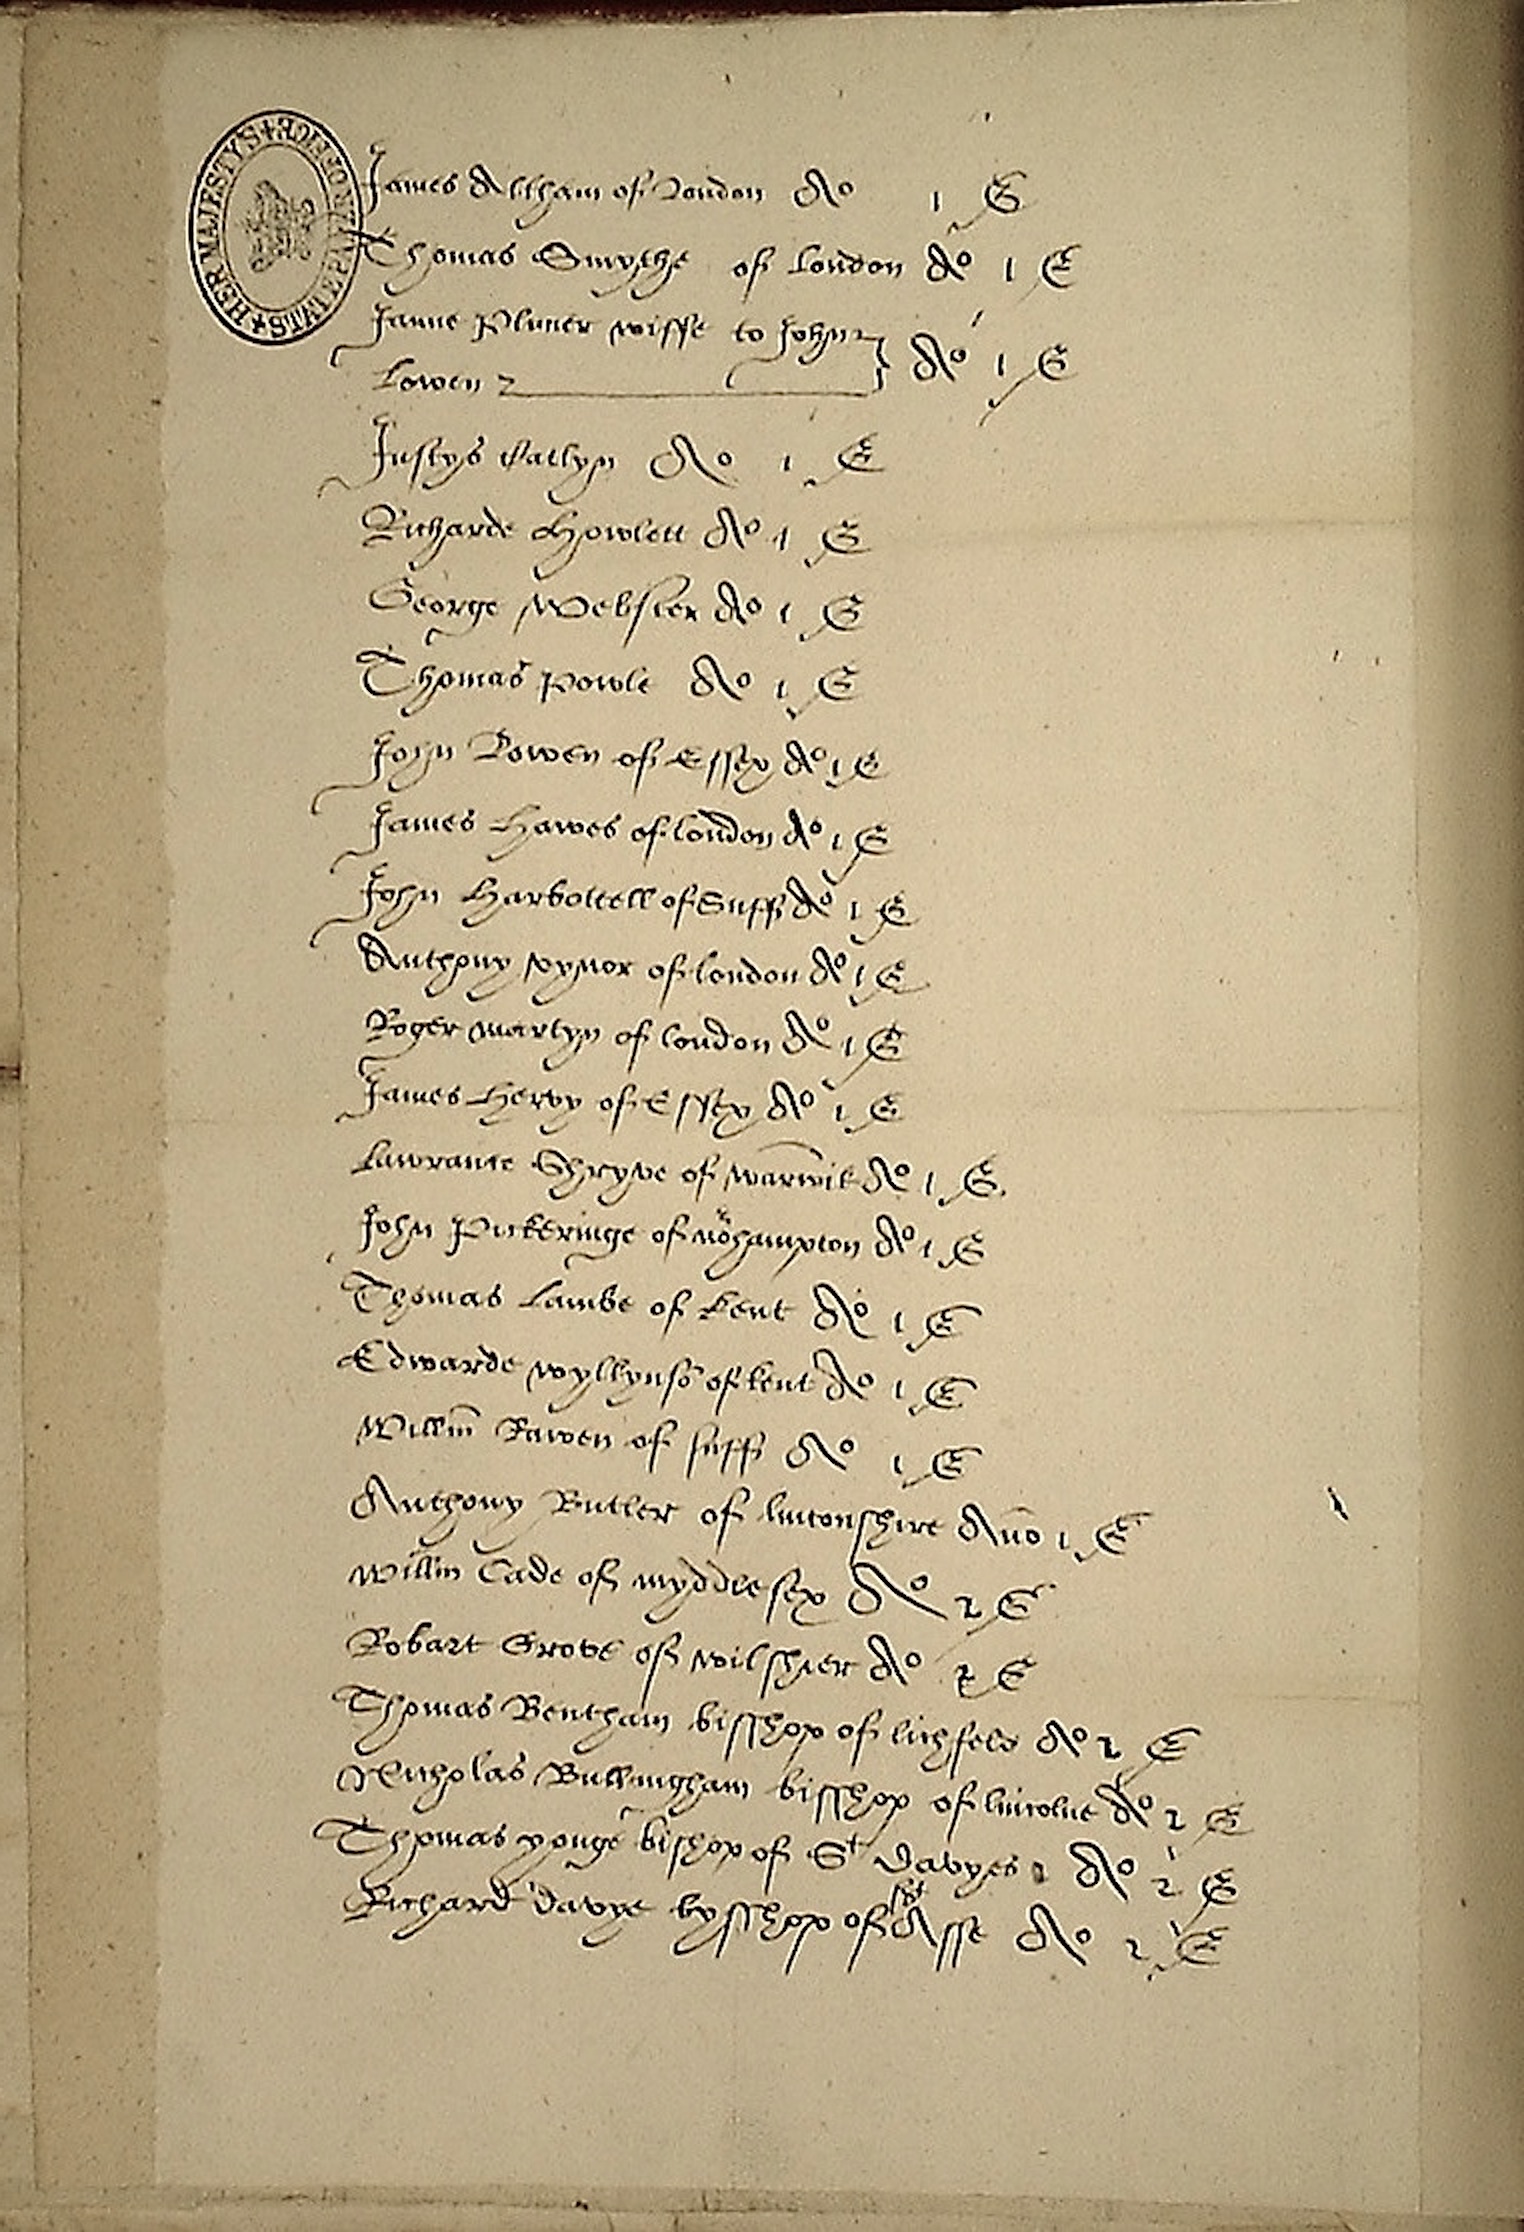 HER MAJESTY'S STATE PAPER OFFICE
James Altham of London Ao 1 E
Thomas Smythe of London Ao 1 E
Janne Plmer wiffe to John
Lowen Ao 1 E
Justys Catlyn Ao 1 E
Richarde Howlett Ao 1 E
George Webster Ao 1 E
Thomas Powle Ao 1 E
John Lowen of Essex Ao 1 E
James Hawes of london Ao 1 E
John Harbottell of Suff Ao 1 E
Anthony of london Ao 1 E
Roger martyn of london Ao 1 E
James Hervy of Essex Ao 1 E
Lawrance Shryve of warwik Ao 1 E
John Pickeringe of norhampton Ao 1 E
Thomas Lambe of kent Ao 1 E
Edwarde wyllynsō of kent Ao 1 E
Willm̄ Rawen of suff Ao 1 E
Anthony Butler of linconshire Ano 1 E
Willm Cade of myddlesex Ao 2 E
Robart Grove of wilshier Ao 2 E
Thomas Bentham bisshop of lichfeld Ao 2 E
Nicholas Bullingham bisshop of lincolne Ao 2 E
Thomas yonge bishop of St davyes Ao 2 E
Richard davye bysshop of St Asse Ao 2 E